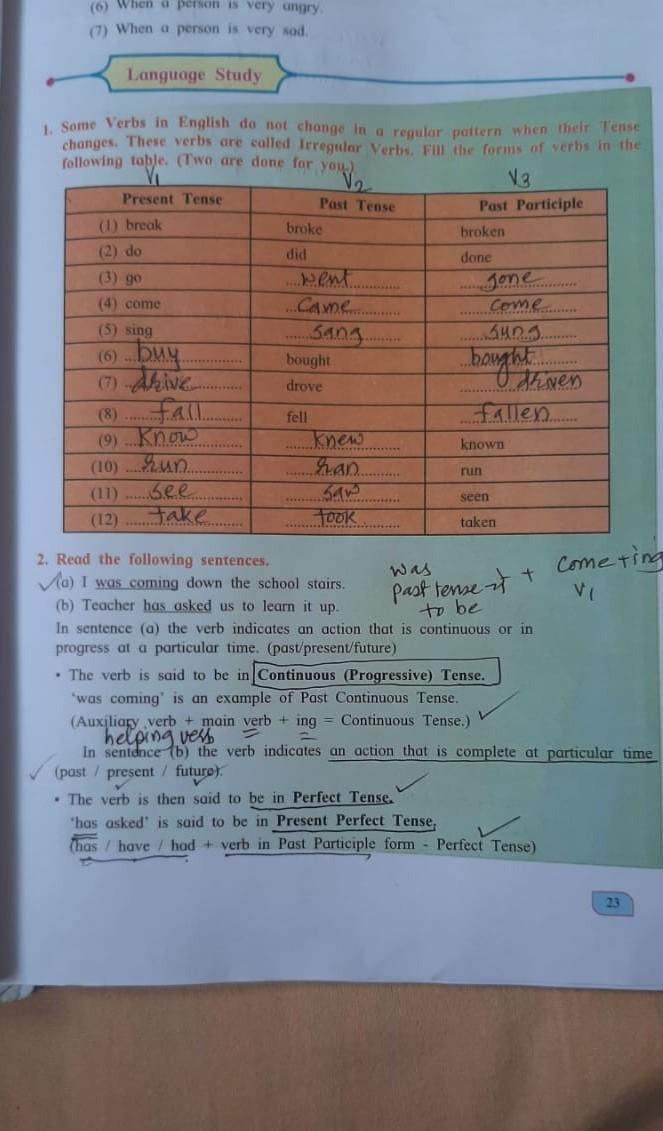 (6) When a person is very angry.
(7) When a person is very sad.
Language Study
1. Some Verbs in English do not change in a regular pattern when their Tense
changes. These verbs are called Irregular Verbs. Fill the forms of verbs in the
following table. (Two are done for you.)
V1 V2 V3
Present Tense Past Tense Past Participle
(1) break broke broken
(2) do did done
(3) go went gone
(4) come came come
(5) sing sang sung
(6) buy bought bought
(7) drive drove driven
(8) fall fell fallen
(9) know knew known
(10) run ran run
(11) see saw seen
(12) take took taken
2. Read the following sentences.
was + come + ing
(a) I was coming down the school stairs. past tense V1
(b) Teacher has asked us to learn it up. to be
In sentence (a) the verb indicates an action that is continuous or in
progress at a particular time. (past/present/future)
• The verb is said to be in Continuous (Progressive) Tense.
'was coming' is an example of Past Continuous Tense.
(Auxiliary verb + main verb + ing = Continuous Tense.)
helping verb
In sentence (b) the verb indicates an action that is complete at particular time
(past / present / future).
• The verb is then said to be in Perfect Tense.
'has asked' is said to be in Present Perfect Tense.
(has / have / had + verb in Past Participle form - Perfect Tense)
23